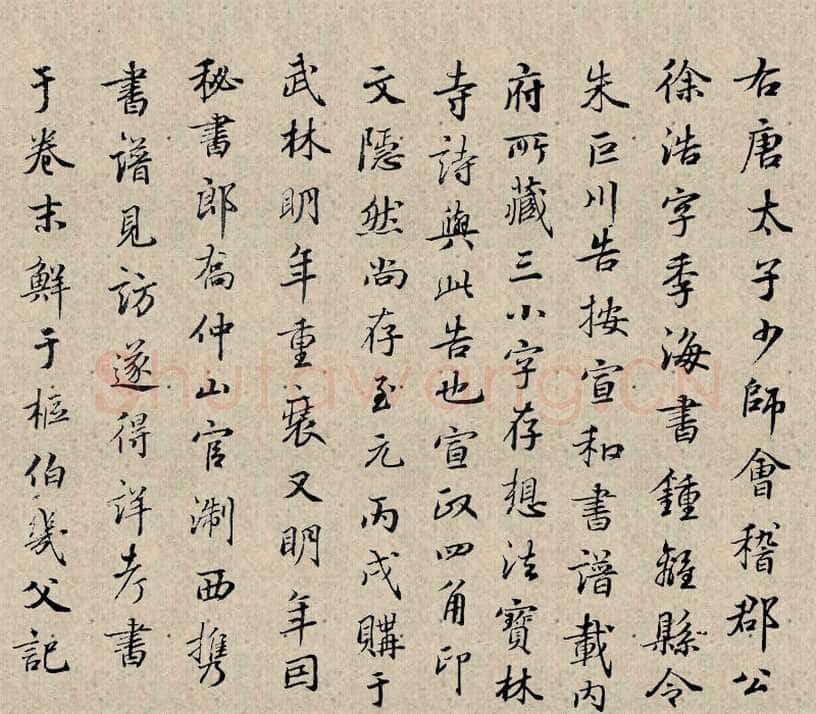 右唐太子少師會稽郡公
徐浩字季海書鍾離縣令
朱巨川告按宣和書譜載內
府所藏三小字存想法寶林
寺詩與此告也宣政四角印
文隱然尚存至元丙戌購于
武林明年重裝又明年因
秘書郎喬仲山官淛西携
書譜見訪遂得詳考書
于卷末鮮于樞伯幾父記
Shufawang.CN